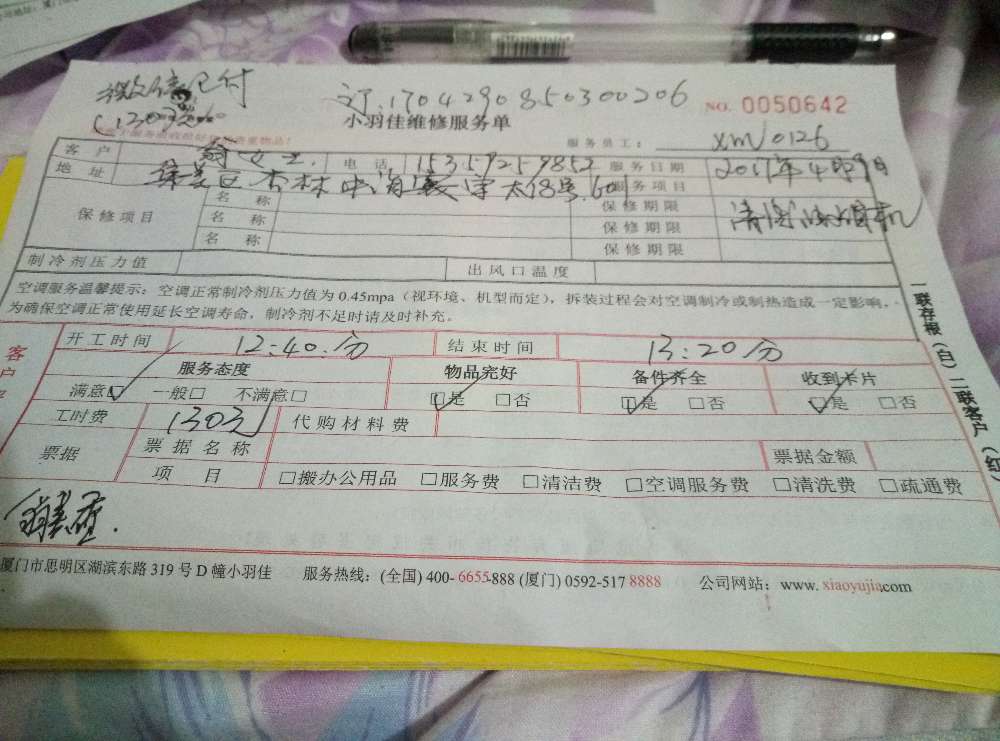 微信已付
(130元)
订.1704290850300206
NO. 0050642
小羽佳维修服务单
服务员工: xm/0126
客户 翁女士. 电话 15359259852 服务日期 2017年4月29日
地址 集美区杏林 服务项目 清洗油烟机
保修项目
名称 保修期限
名称 保修期限
名称 保修期限
制冷剂压力值 出风口温度
空调服务温馨提示:空调正常制冷剂压力值为 0.45mpa(视环境、机型而定),拆装过程会对空调制冷或制热造成一定影响,
为确保空调正常使用延长空调寿命,制冷剂不足时请及时补充。
客户
开工时间 12:40.分 结束时间 13:20分
服务态度 物品完好 备件齐全 收到卡片
满意☑ 一般□ 不满意□ ☑是 □否 ☑是 □否 ☑是 □否
工时费 130元 代购材料费
票据 票据名称 票据金额
项目 □搬办公用品 □服务费 □清洁费 □空调服务费 □清洗费 □疏通费
一联存根(白)二联客户(红)
厦门市思明区湖滨东路 319 号 D 幢小羽佳 服务热线:(全国) 400-6655-888 (厦门) 0592-517 8888 公司网站:www. xiaoyujia.com